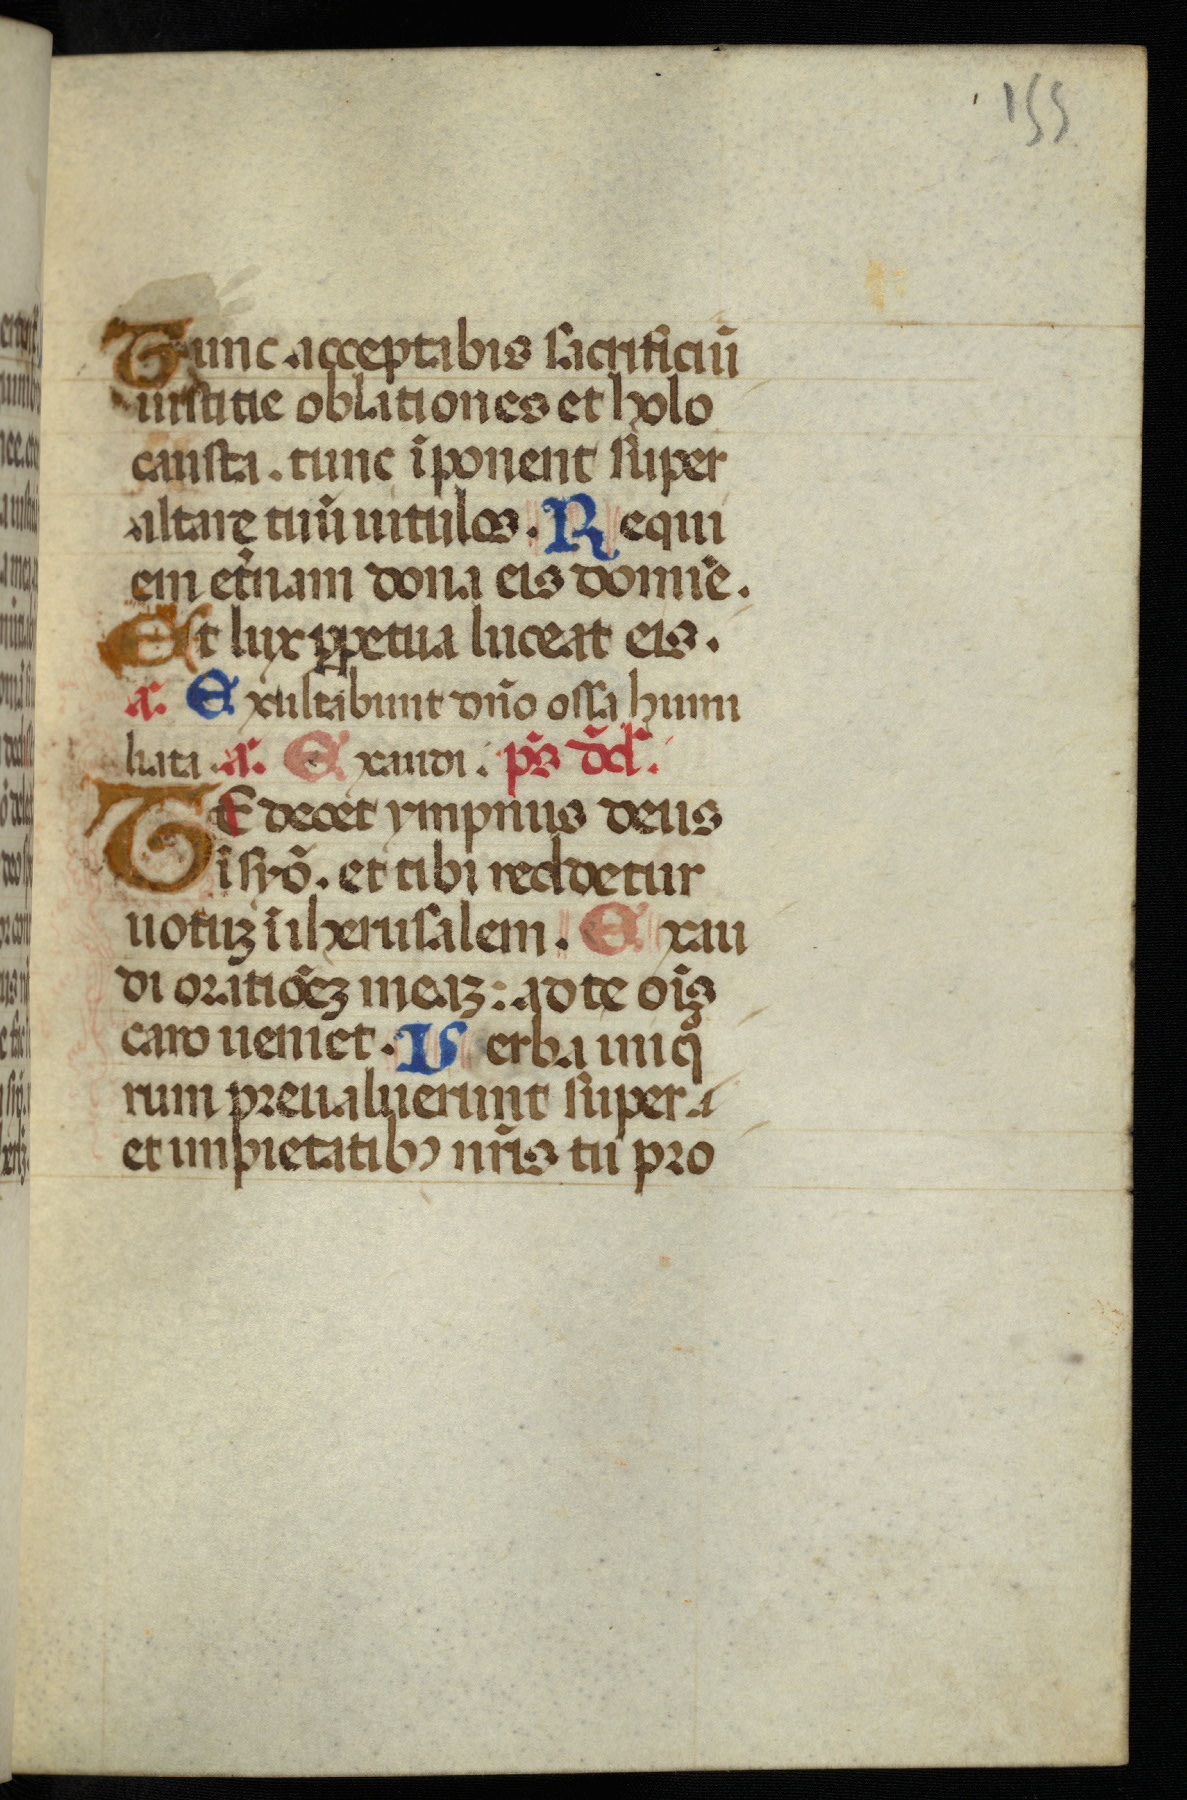 155
Tunc acceptabis sacrificiū
iustitie oblationes et holo
causta. tunc īponent super
altare tuū uitulos. Requi
em et̃nam dona eis domie̅.
Et lux ꝑpetua luceat eis.
a. Exultabunt dn̄o ossa humi
liata. a. Exaudi. p̄s dd̄.
TE decet ympnus deus
ī syō. et tibi reddetur
uotuꝫ ī iherusalem. Exau
di oratiōeꝫ meaꝫ: ad te oīs
caro ueniet. Verba iniqͦ
rum preualuerunt super a
et impietatibꝰ nr̄is tu pro